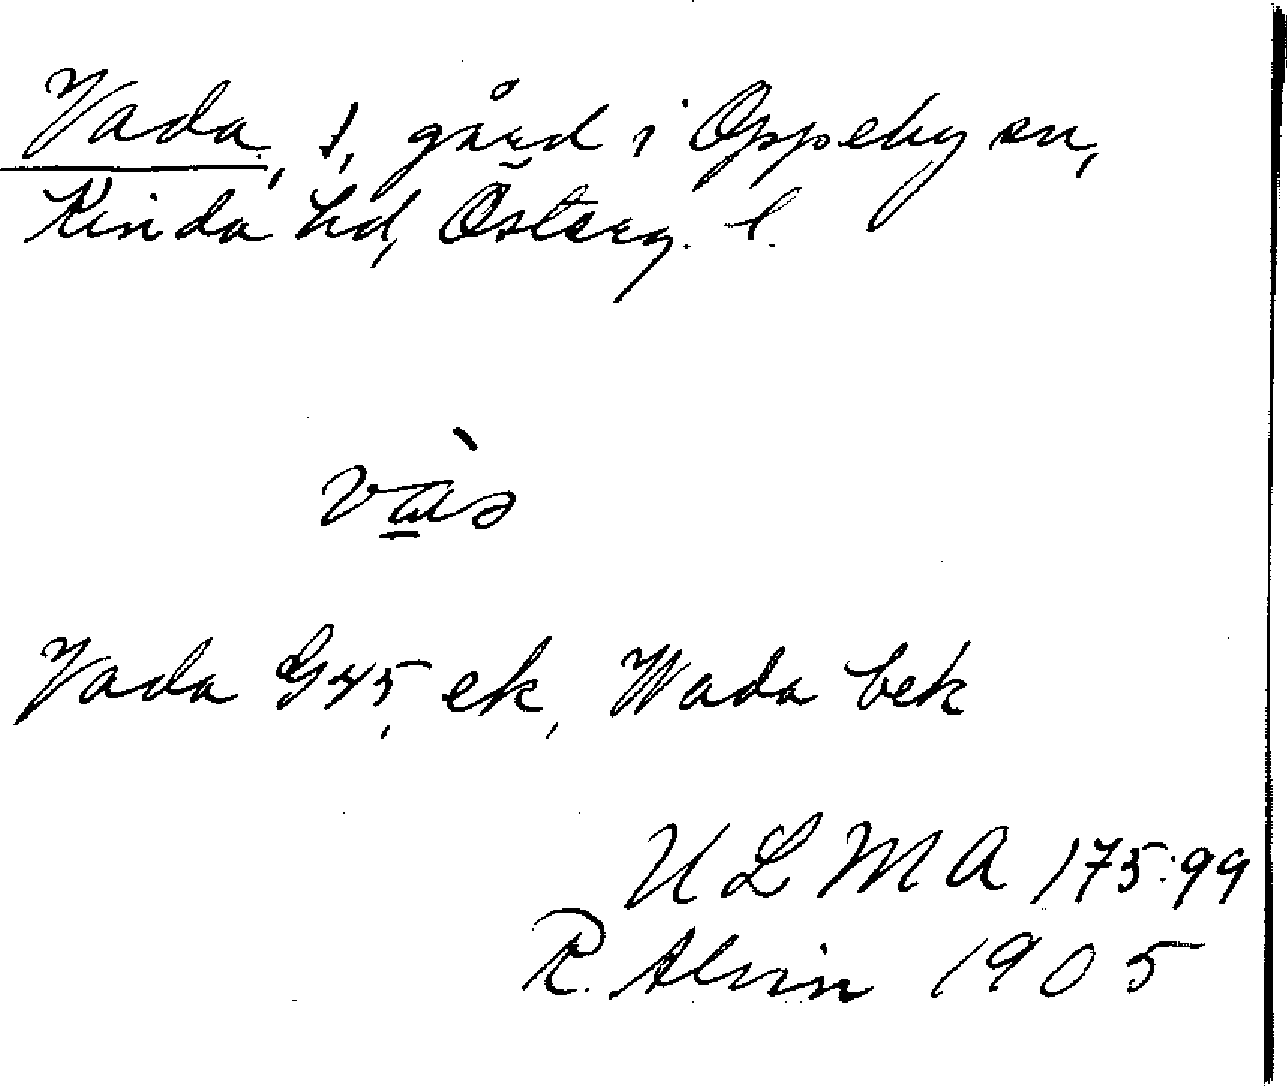 Vada, 1, gård i Oppeby sn,
Kinda hd, Österg. l.
Vada G45, ek, Wada bek
ULMA 175:99
R. Alvin 1905